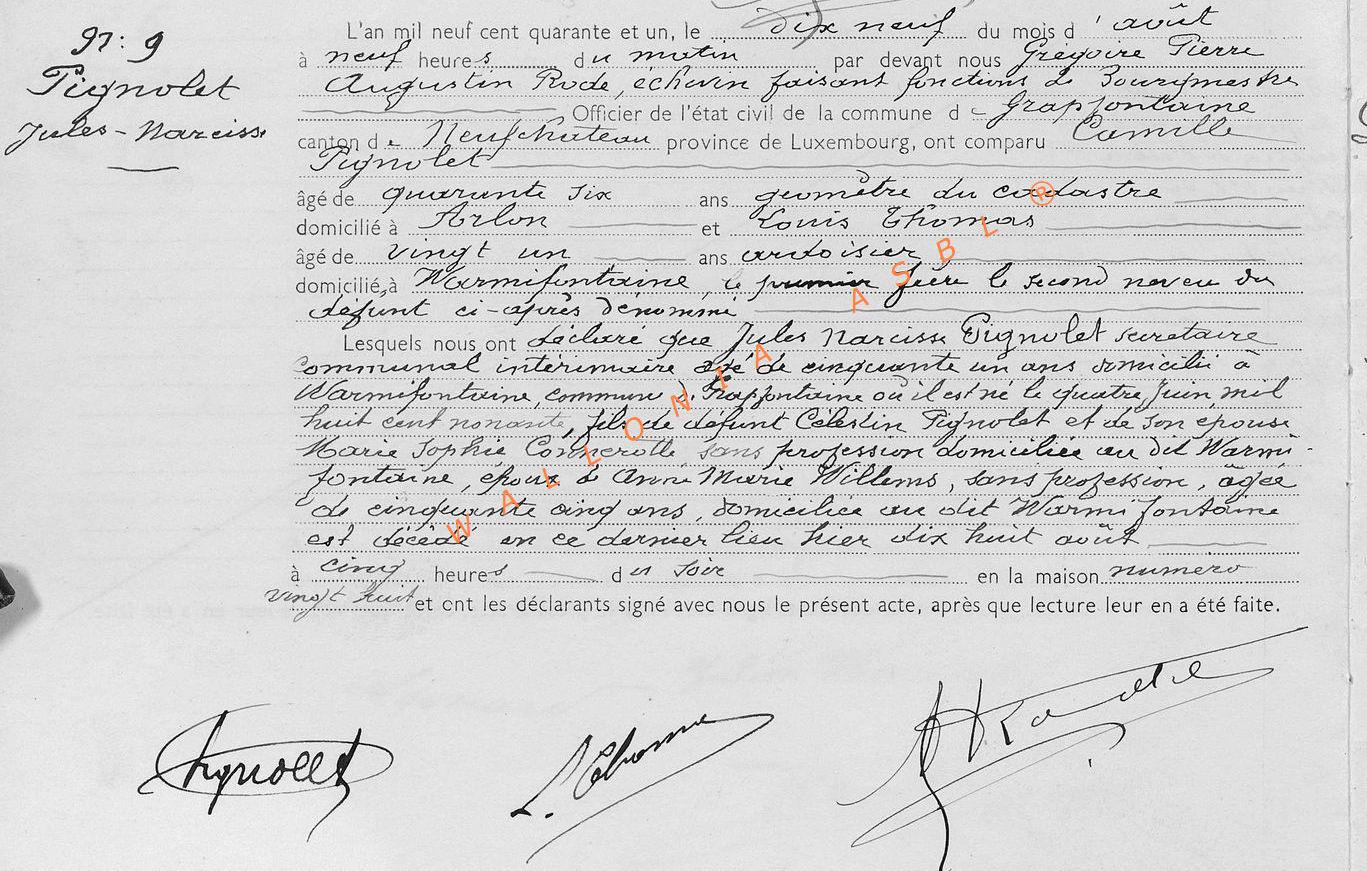 N: 9
Pignolet
Jules-Narcisse
L'an mil neuf cent quarante et un, le dix neuf du mois d'août
à neuf heures du matin par devant nous Grégoire Pierre
Augustin Rode, échevin faisant fonctions de Bourgmestre
Officier de l'état civil de la commune de Grapfontaine
canton de Neufchateau province de Luxembourg, ont comparu Camille
Pignolet
âgé de quarante six ans geomètre du cadastre
domicilié à Arlon et Louis Thomas
âgé de vingt un ans ardoisier
domicilié à Warmifontaine, le premier frère le second neveu du
défunt ci-après dénommé
Lesquels nous ont déclaré que Jules Narcisse Pignolet secretaire
Communal intérimaire agé de cinquante un ans domicilié à
Warmifontaine, commune d. Grapfontaine où il est né le quatre Juin mil
huit cent nonante, fils de défunt Célestin Pignolet et de son épouse
Marie Sophie sans profession domiciliée au dit Warmi-
fontaine, époux d Anne Marie Willems, sans profession, âgée
de cinquante cinq ans, domiciliée au dit Warmifontaine
est décédé en ce dernier lieu hier dix huit août
à cinq heures du soir en la maison numero
vingt huit et ont les déclarants signé avec nous le présent acte, après que lecture leur en a été faite.
WALLONIA ASBL ®
Pignolet
L. Thomas